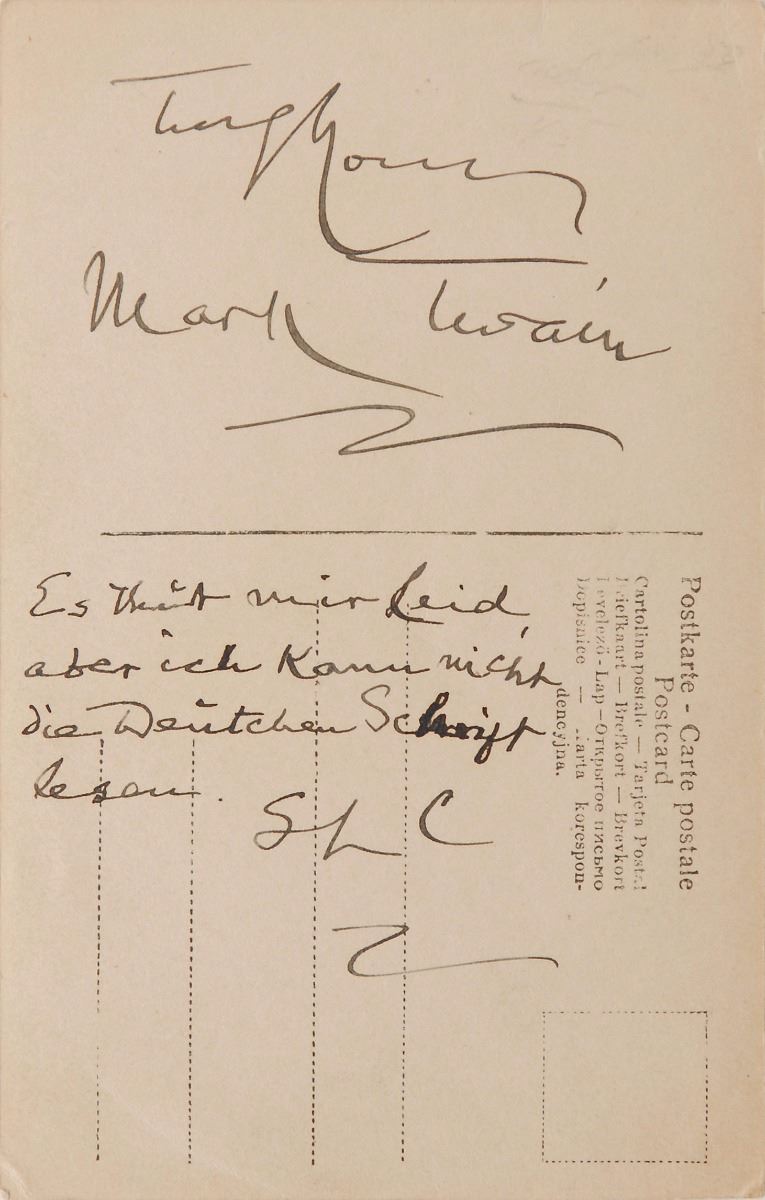 Truly Yours
Mark Twain
Es thut mir Leid,
aber ich kann nicht
die Deutchen Schrift
lesen.
SLC
Postkarte - Carte postale
Postcard
Cartolina postale — Tarjeta Postal
Briefkaart — Brefkort — Brevkort
Levelező-Lap — Открытое письмо
Dopisnice — Karta korespon-
dencyjna.